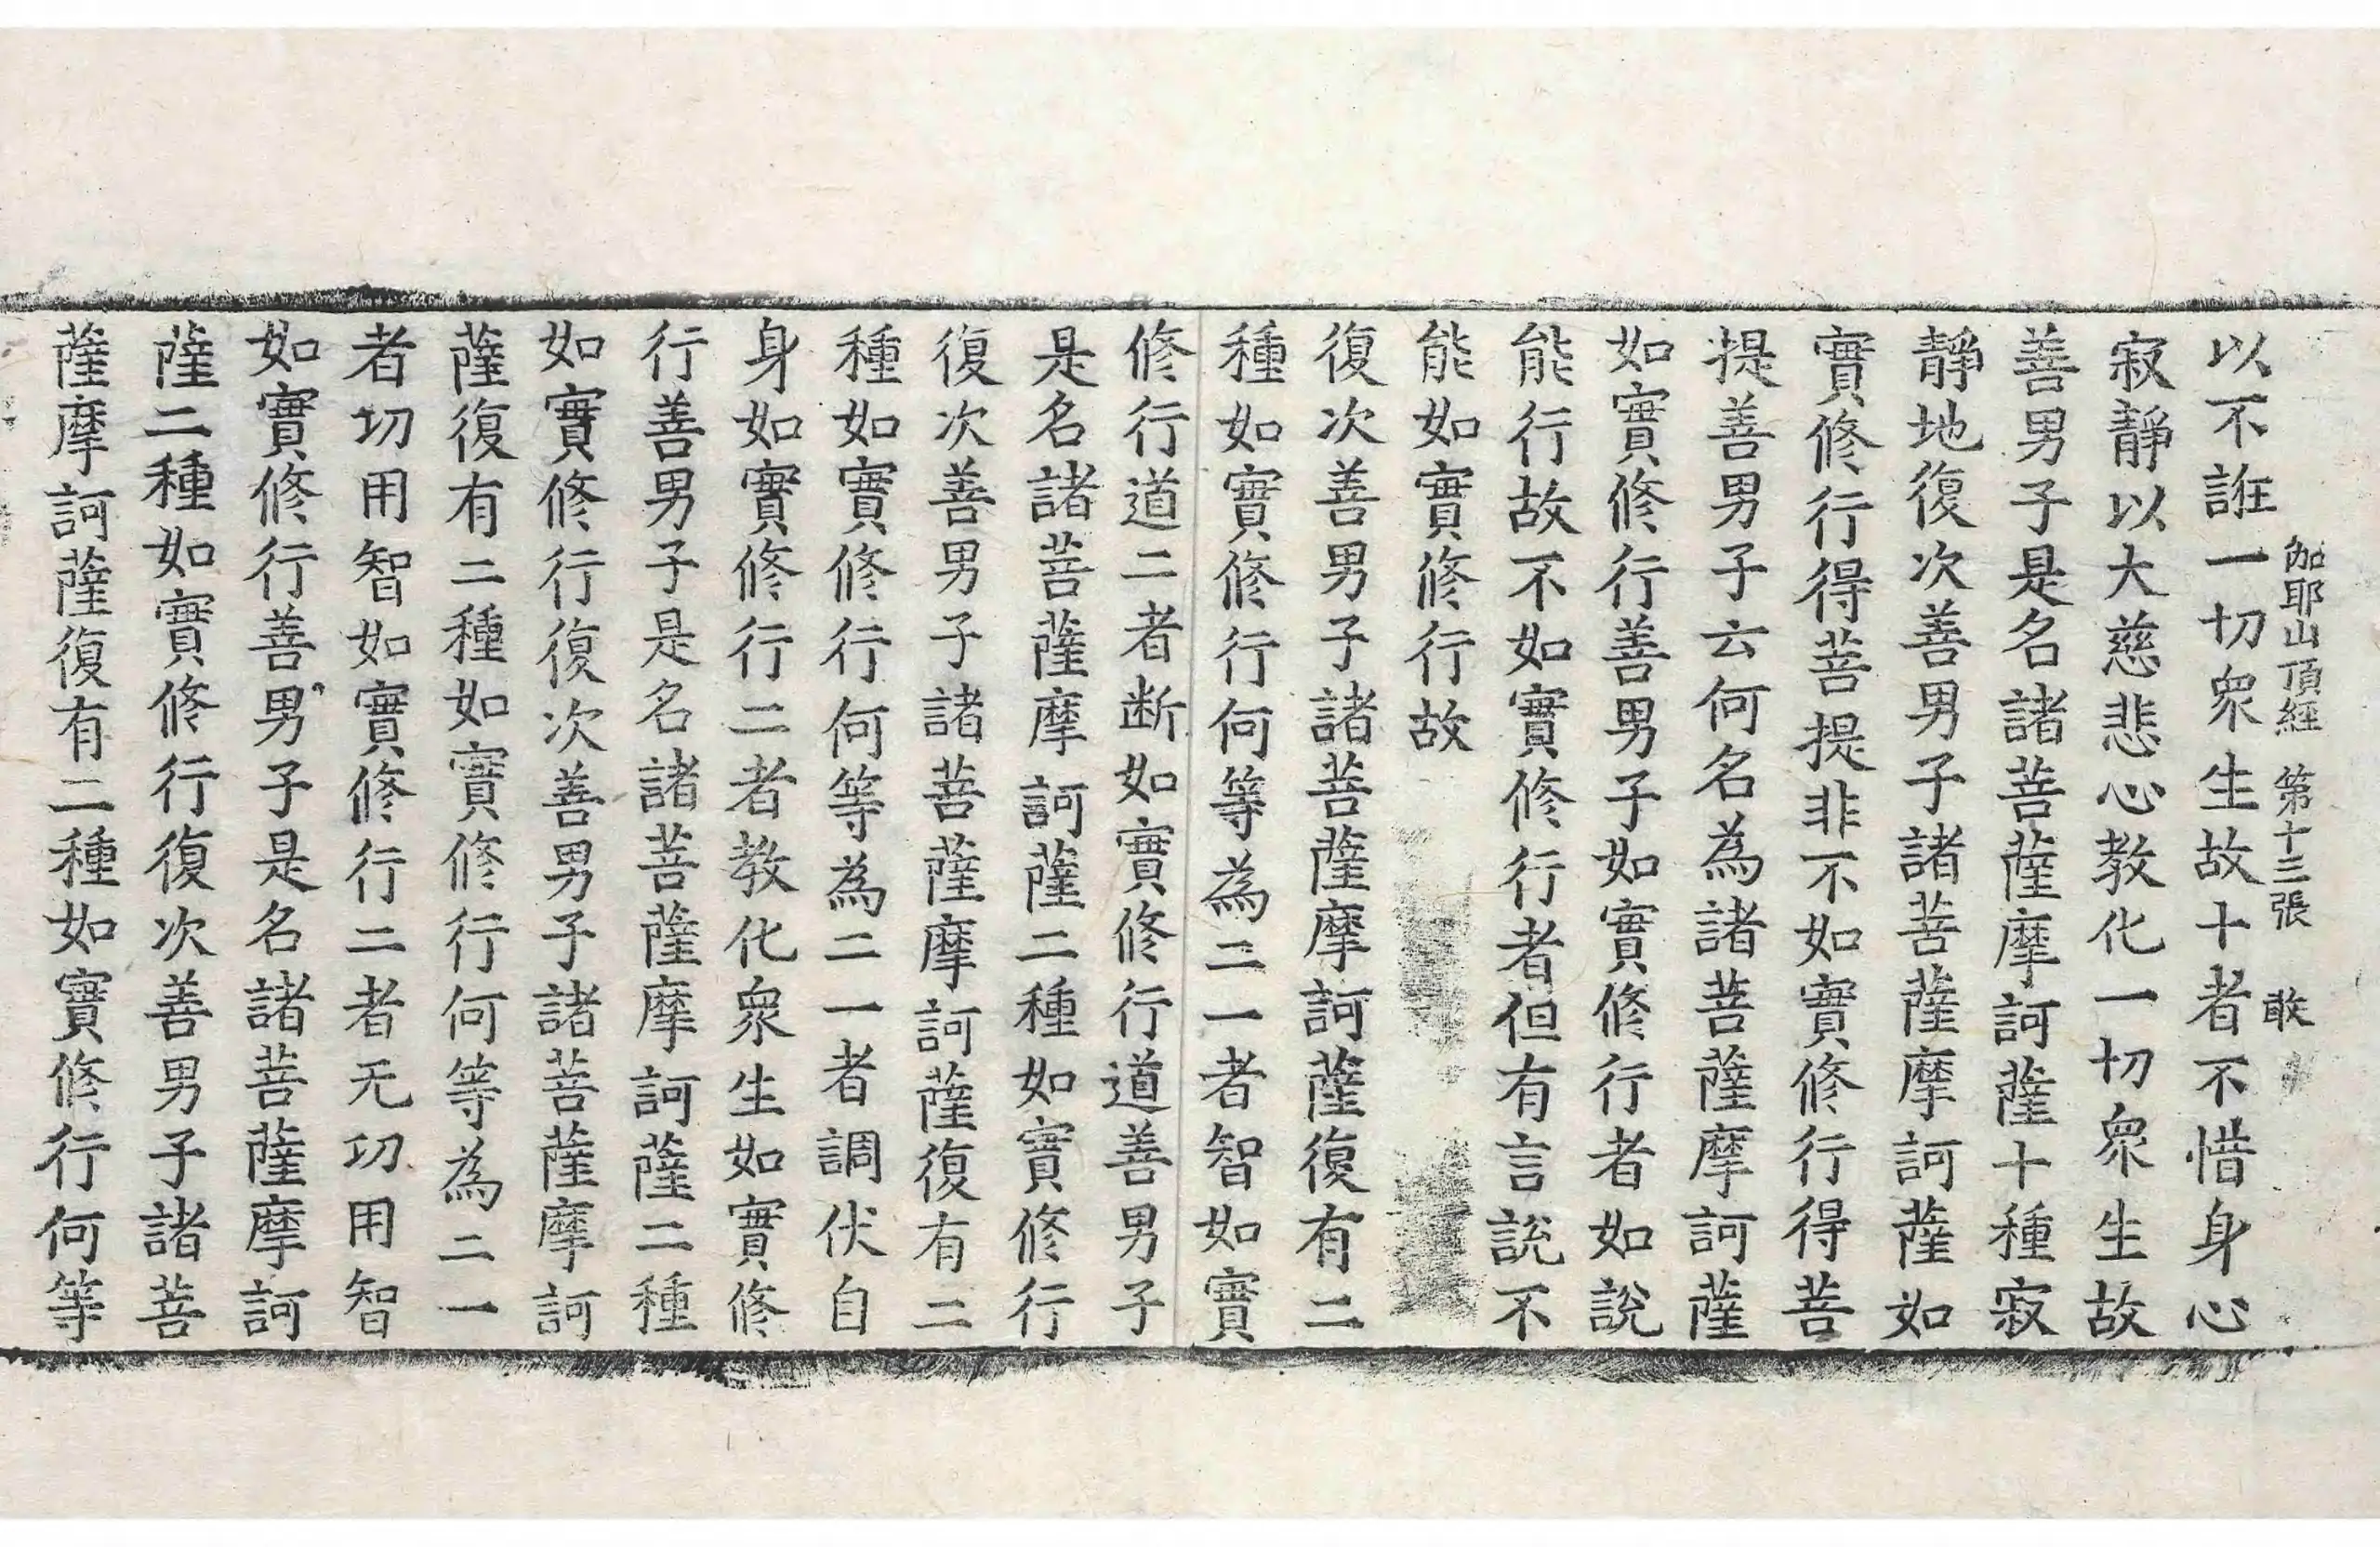 伽耶山頂經 第十三張 敢
以不誑一切衆生故十者不惜身心
寂靜以大慈悲心教化一切衆生故
善男子是名諸菩薩摩訶薩十種寂
靜地復次善男子諸菩薩摩訶薩如
實修行得菩提非不如實修行得菩
提善男子云何名為諸菩薩摩訶薩
如實修行善男子如實修行者如說
能行故不如實修行者但有言說不
能如實修行故
復次善男子諸菩薩摩訶薩復有二
種如實修行何等為二一者智如實
修行道二者断如實修行道善男子
是名諸菩薩摩訶薩二種如實修行
復次善男子諸菩薩摩訶薩復有二
種如實修行何等為二一者調伏自
身如實修行二者教化衆生如實修
行善男子是名諸菩薩摩訶薩二種
如實修行復次善男子諸菩薩摩訶
薩復有二種如實修行何等為二一
者切用智如實修行二者无切用智
如實修行善男子是名諸菩薩摩訶
薩二種如實修行復次善男子諸菩
薩摩訶薩復有二種如實修行何等